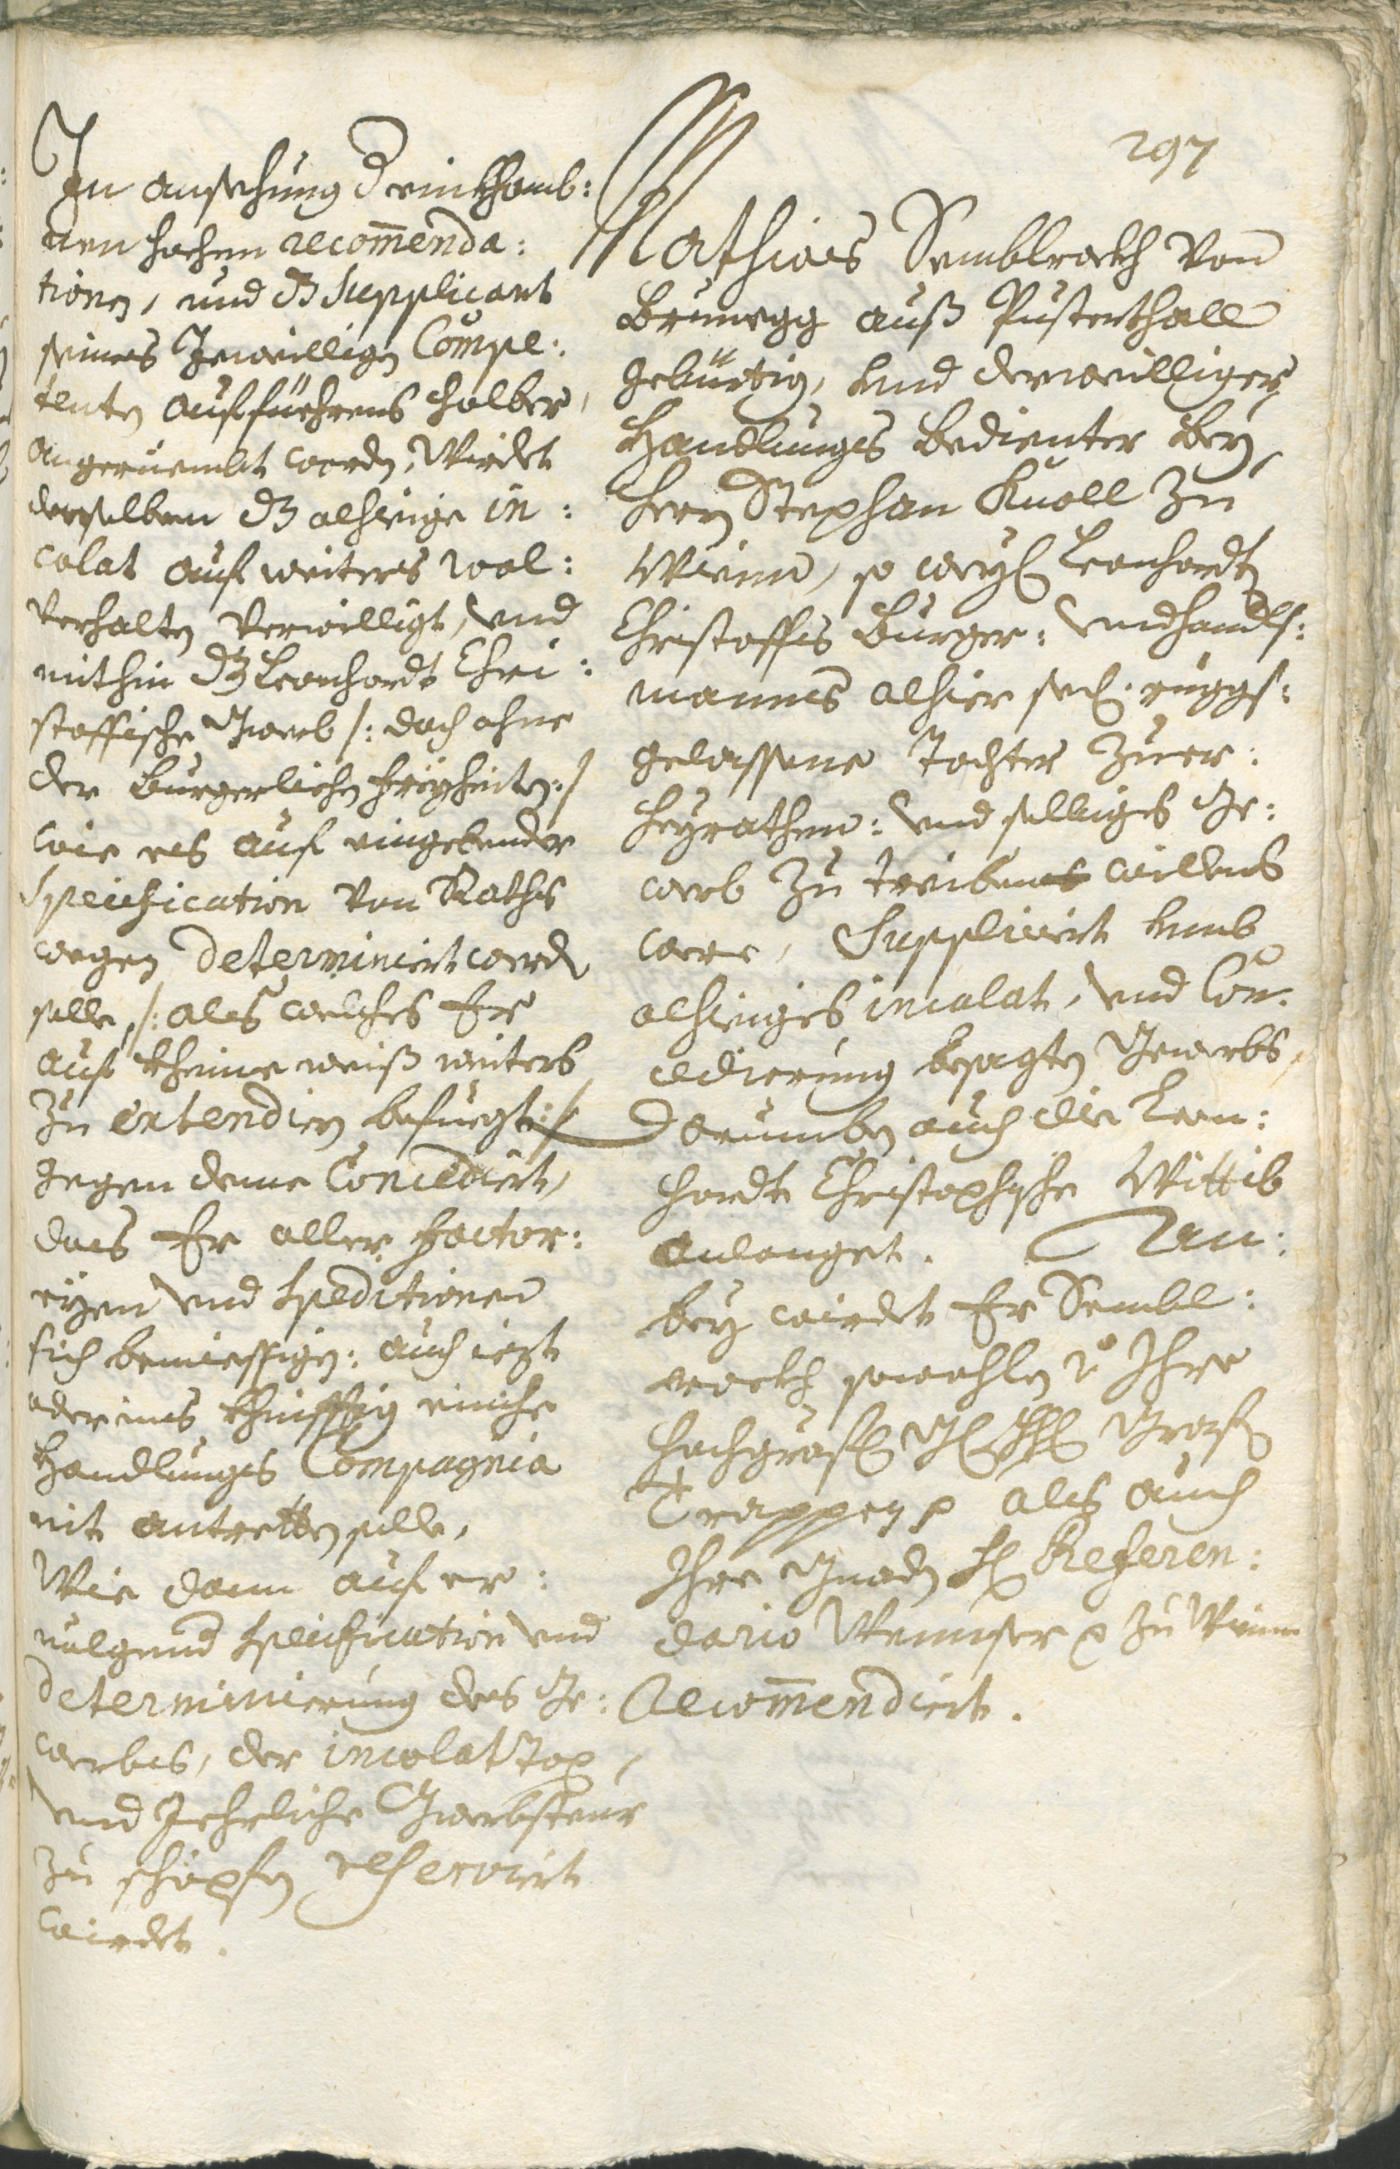 297
In ansechung d' einkhomb:
nen hochen recom̄enda:
tionen, und dz Supplicant
seines Jeweilligen Compe:
tenten aufführens halber,
angeruembt worden, Wirdet
demselben dz alhieige in:
colat auf weiters wol:
verhalten verwilligt, vnd
mithin dz Leonhardt Chri:
stoffische Gwerb /: doch ohne
der Burgerlichen freyheiten :/
wie es auf eingebender
Specification von Raths
wegen determiniert werden
solle, /: als welches Er
auf kheine weiß weiters
zu extendiern befuegt :/
gegen deme Concediert,
das Er aller Factor:
eyen vnd Speditionen
sich bemiessigen: auch iezt
oder ins khinfftig einiche
Handlungs Compagnia
nit antretten solle,
Wie dann auf er:
uolgend Specification vnd
determinierung des Ge:
werbes, der incolat Tax,
vnd Jehrliche Gwerbsteur
zu schöpfen reserviert
wirdet.
Mathias Semblrockh von
Brunegg auß Pusterthall
gebürtig, vnd derweilliger
Handlungs Bedienter bey
Herrn Stephan Knoll zu
Wienn, so weyl: Leonhardt
Christoffs Burger: vnd handls:
manns alhier seel: ruggs:
gelassene Tochter zuer:
heyrathen: vnd selbiges Ge:
werb zu treiben willens
were, Suppliciert vmb
alhieiges incolat, vnd Con:
cedierung besagten Gewerbs,
Darumben auch die Leon:
hardt Christophische Wittib
anlanget. An:
bey wirdet Er Sembl:
rockh sowohlen v: Ihre
Hochgräfl: Gl: Hl: Graf
Trappen p als auch
Ihre Gnaden Hl: Referen:
dario Wenser p zu Wienn
Recom̄endiert.